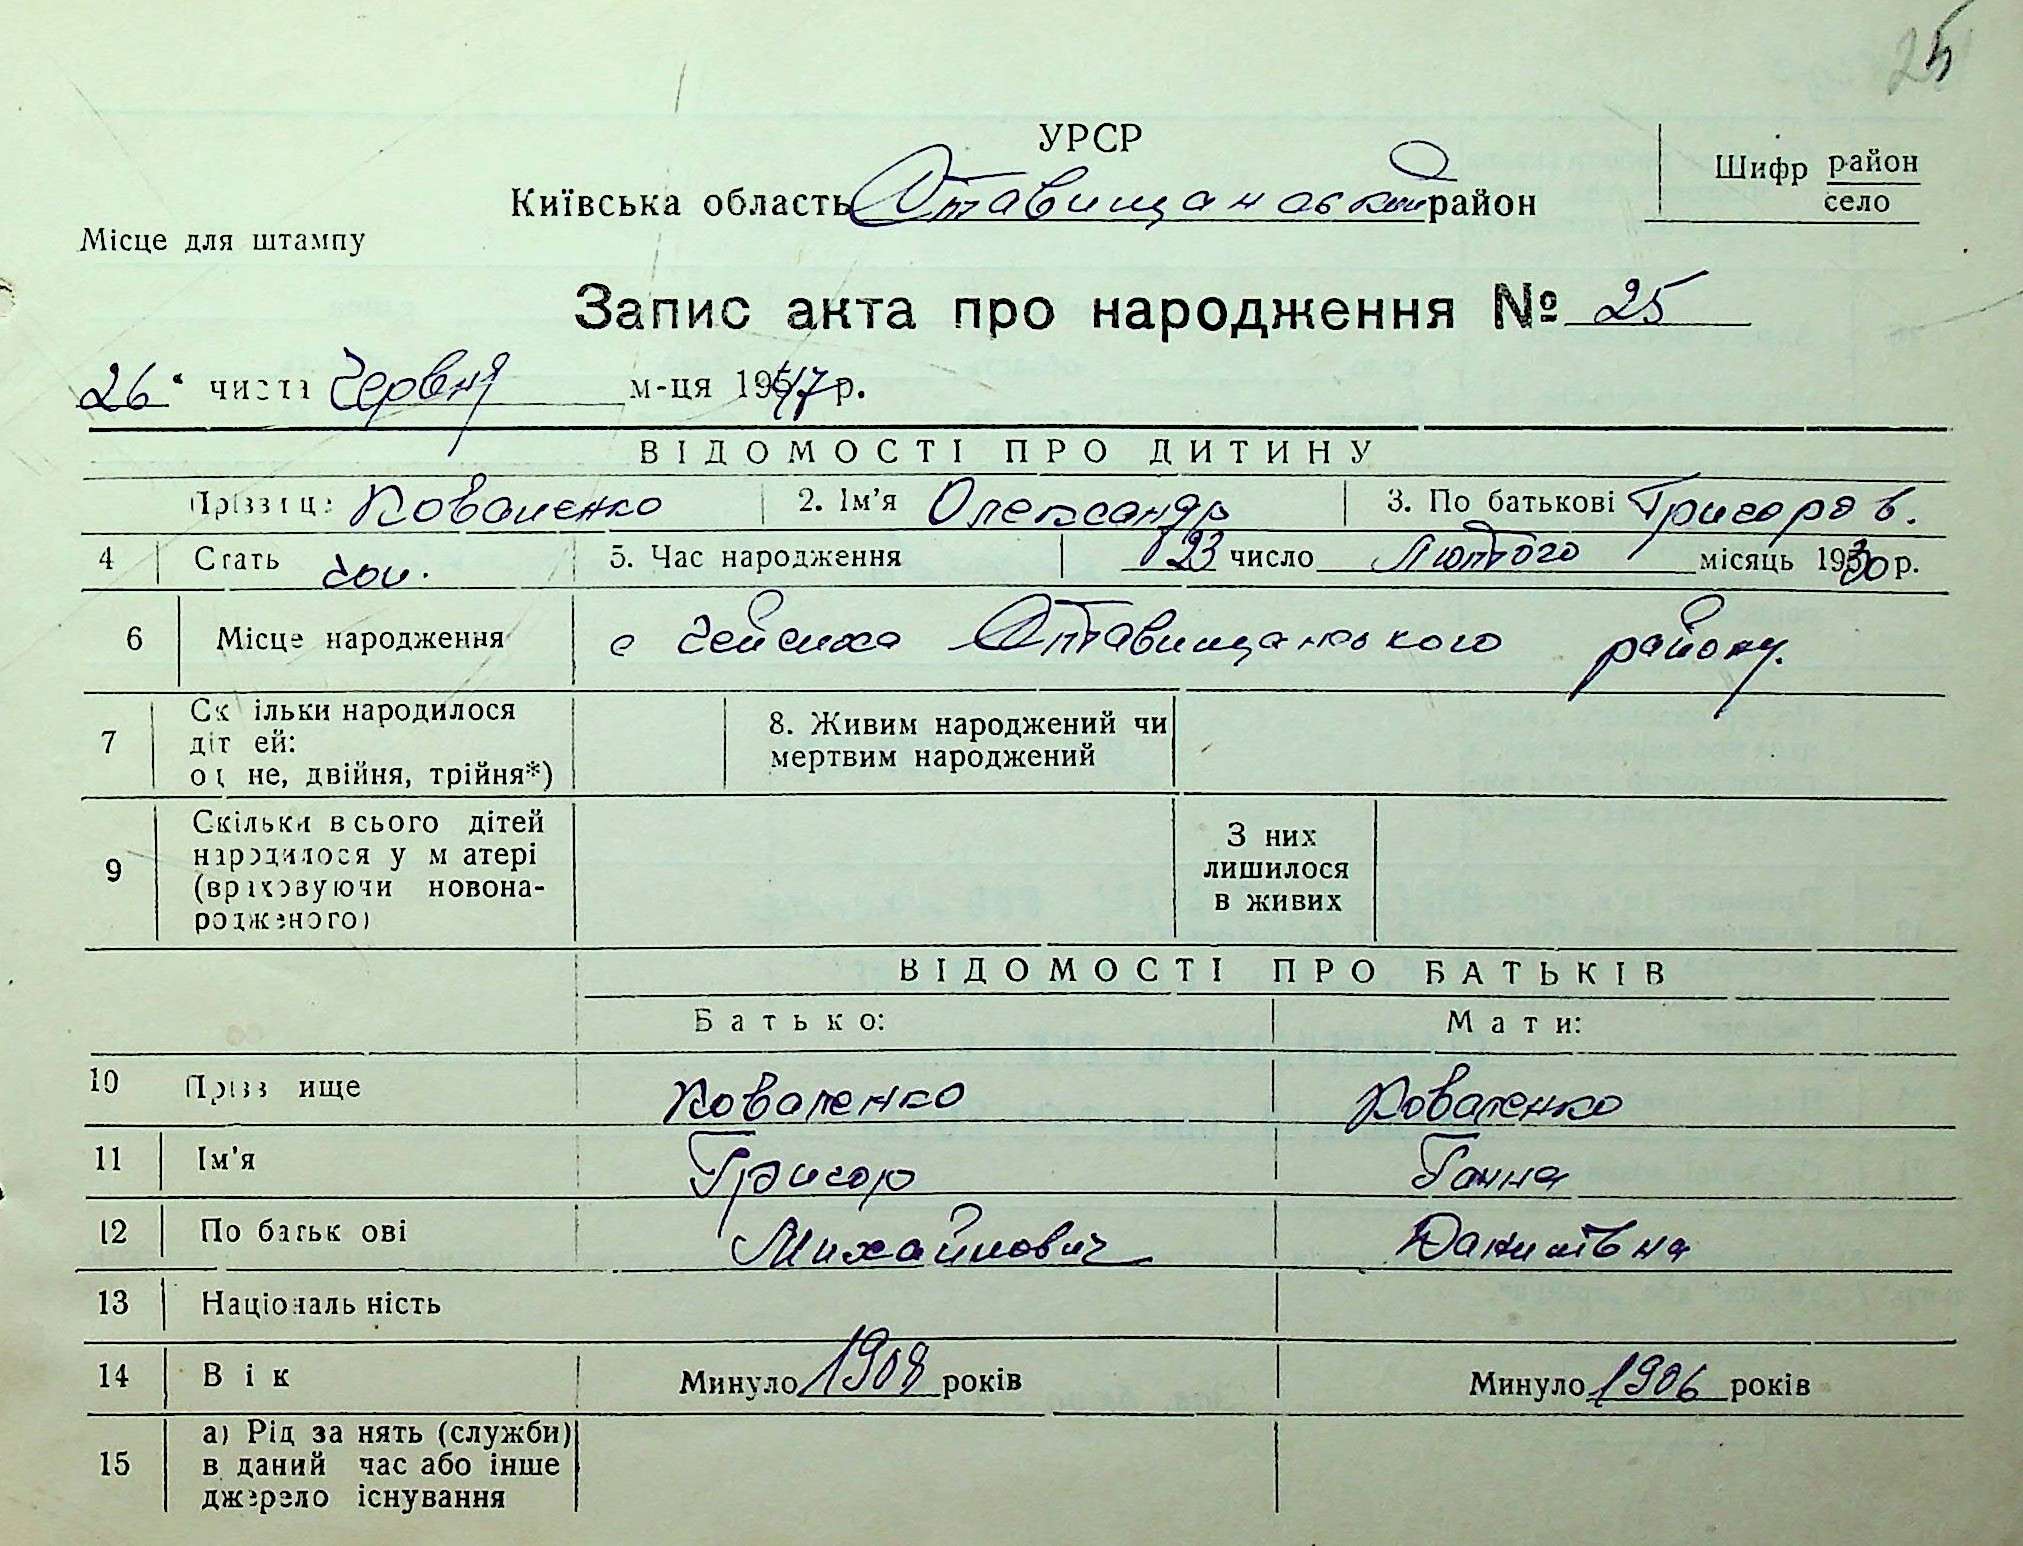 25
УРСР
Київська область Ставищанський район
Шифр район
село
Місце для штампу
Запис акта про народження № 25
26 " числа Червня м-ця 1947 р.
ВІДОМОСТІ ПРО ДИТИНУ
Прізвище Коваленко 2. Ім'я Олександр 3. По батькові Григоров.
4 Стать чол. 5. Час народження 23 число Лютого місяць 1930 р.
6 Місце народження с Ставищанського району.
7 Скільки народилося
дітей:
одне, двійня, трійня*)
8. Живим народжений чи
мертвим народжений
9 Скільки всього дітей
народилося у матері
(враховуючи новона-
родженого)
З них
лишилося
в живих
ВІДОМОСТІ ПРО БАТЬКІВ
Батько: Мати:
10 Прізвище Коваленко Коваленко
11 Ім'я Григор Ганна
12 По батькові Михайлович Данилівна
13 Національність
14 Вік Минуло 1908 років Минуло 1906 років
15 а) Рід занять (служби)
в даний час або інше
джерело існування